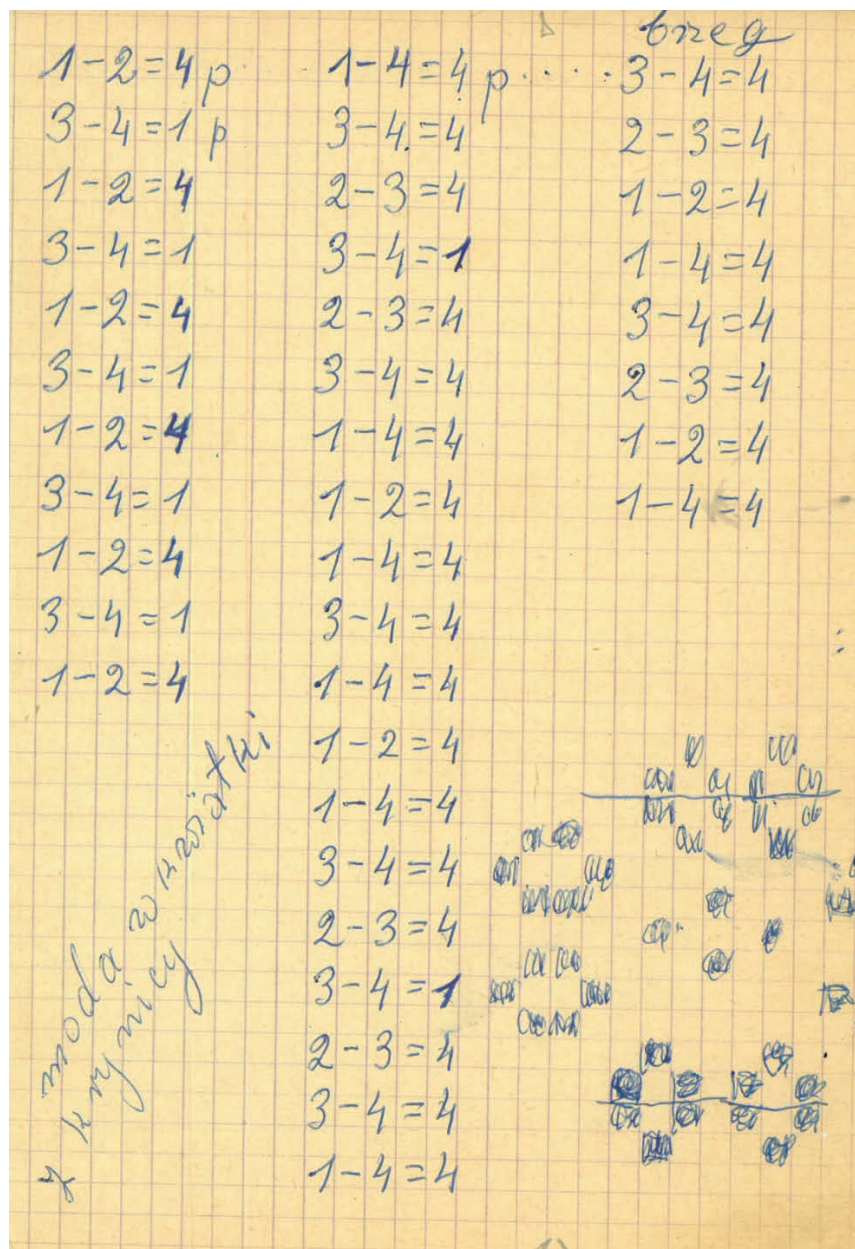 1-2=4 p
3-4=1 p
1-2=4
3-4=1
1-2=4
3-4=1
1-2=4
3-4=1
1-2=4
3-4=1
1-2=4
moda w kwiatki
z krynicy
1-4=4 p.....
3-4=4
2-3=4
3-4=1
2-3=4
3-4=4
1-4=4
1-2=4
1-4=4
3-4=4
1-4=4
1-2=4
1-4=4
3-4=4
2-3=4
3-4=1
2-3=4
3-4=4
1-4=4
brzeg
3-4=4
2-3=4
1-2=4
1-4=4
3-4=4
2-3=4
1-2=4
1-4=4